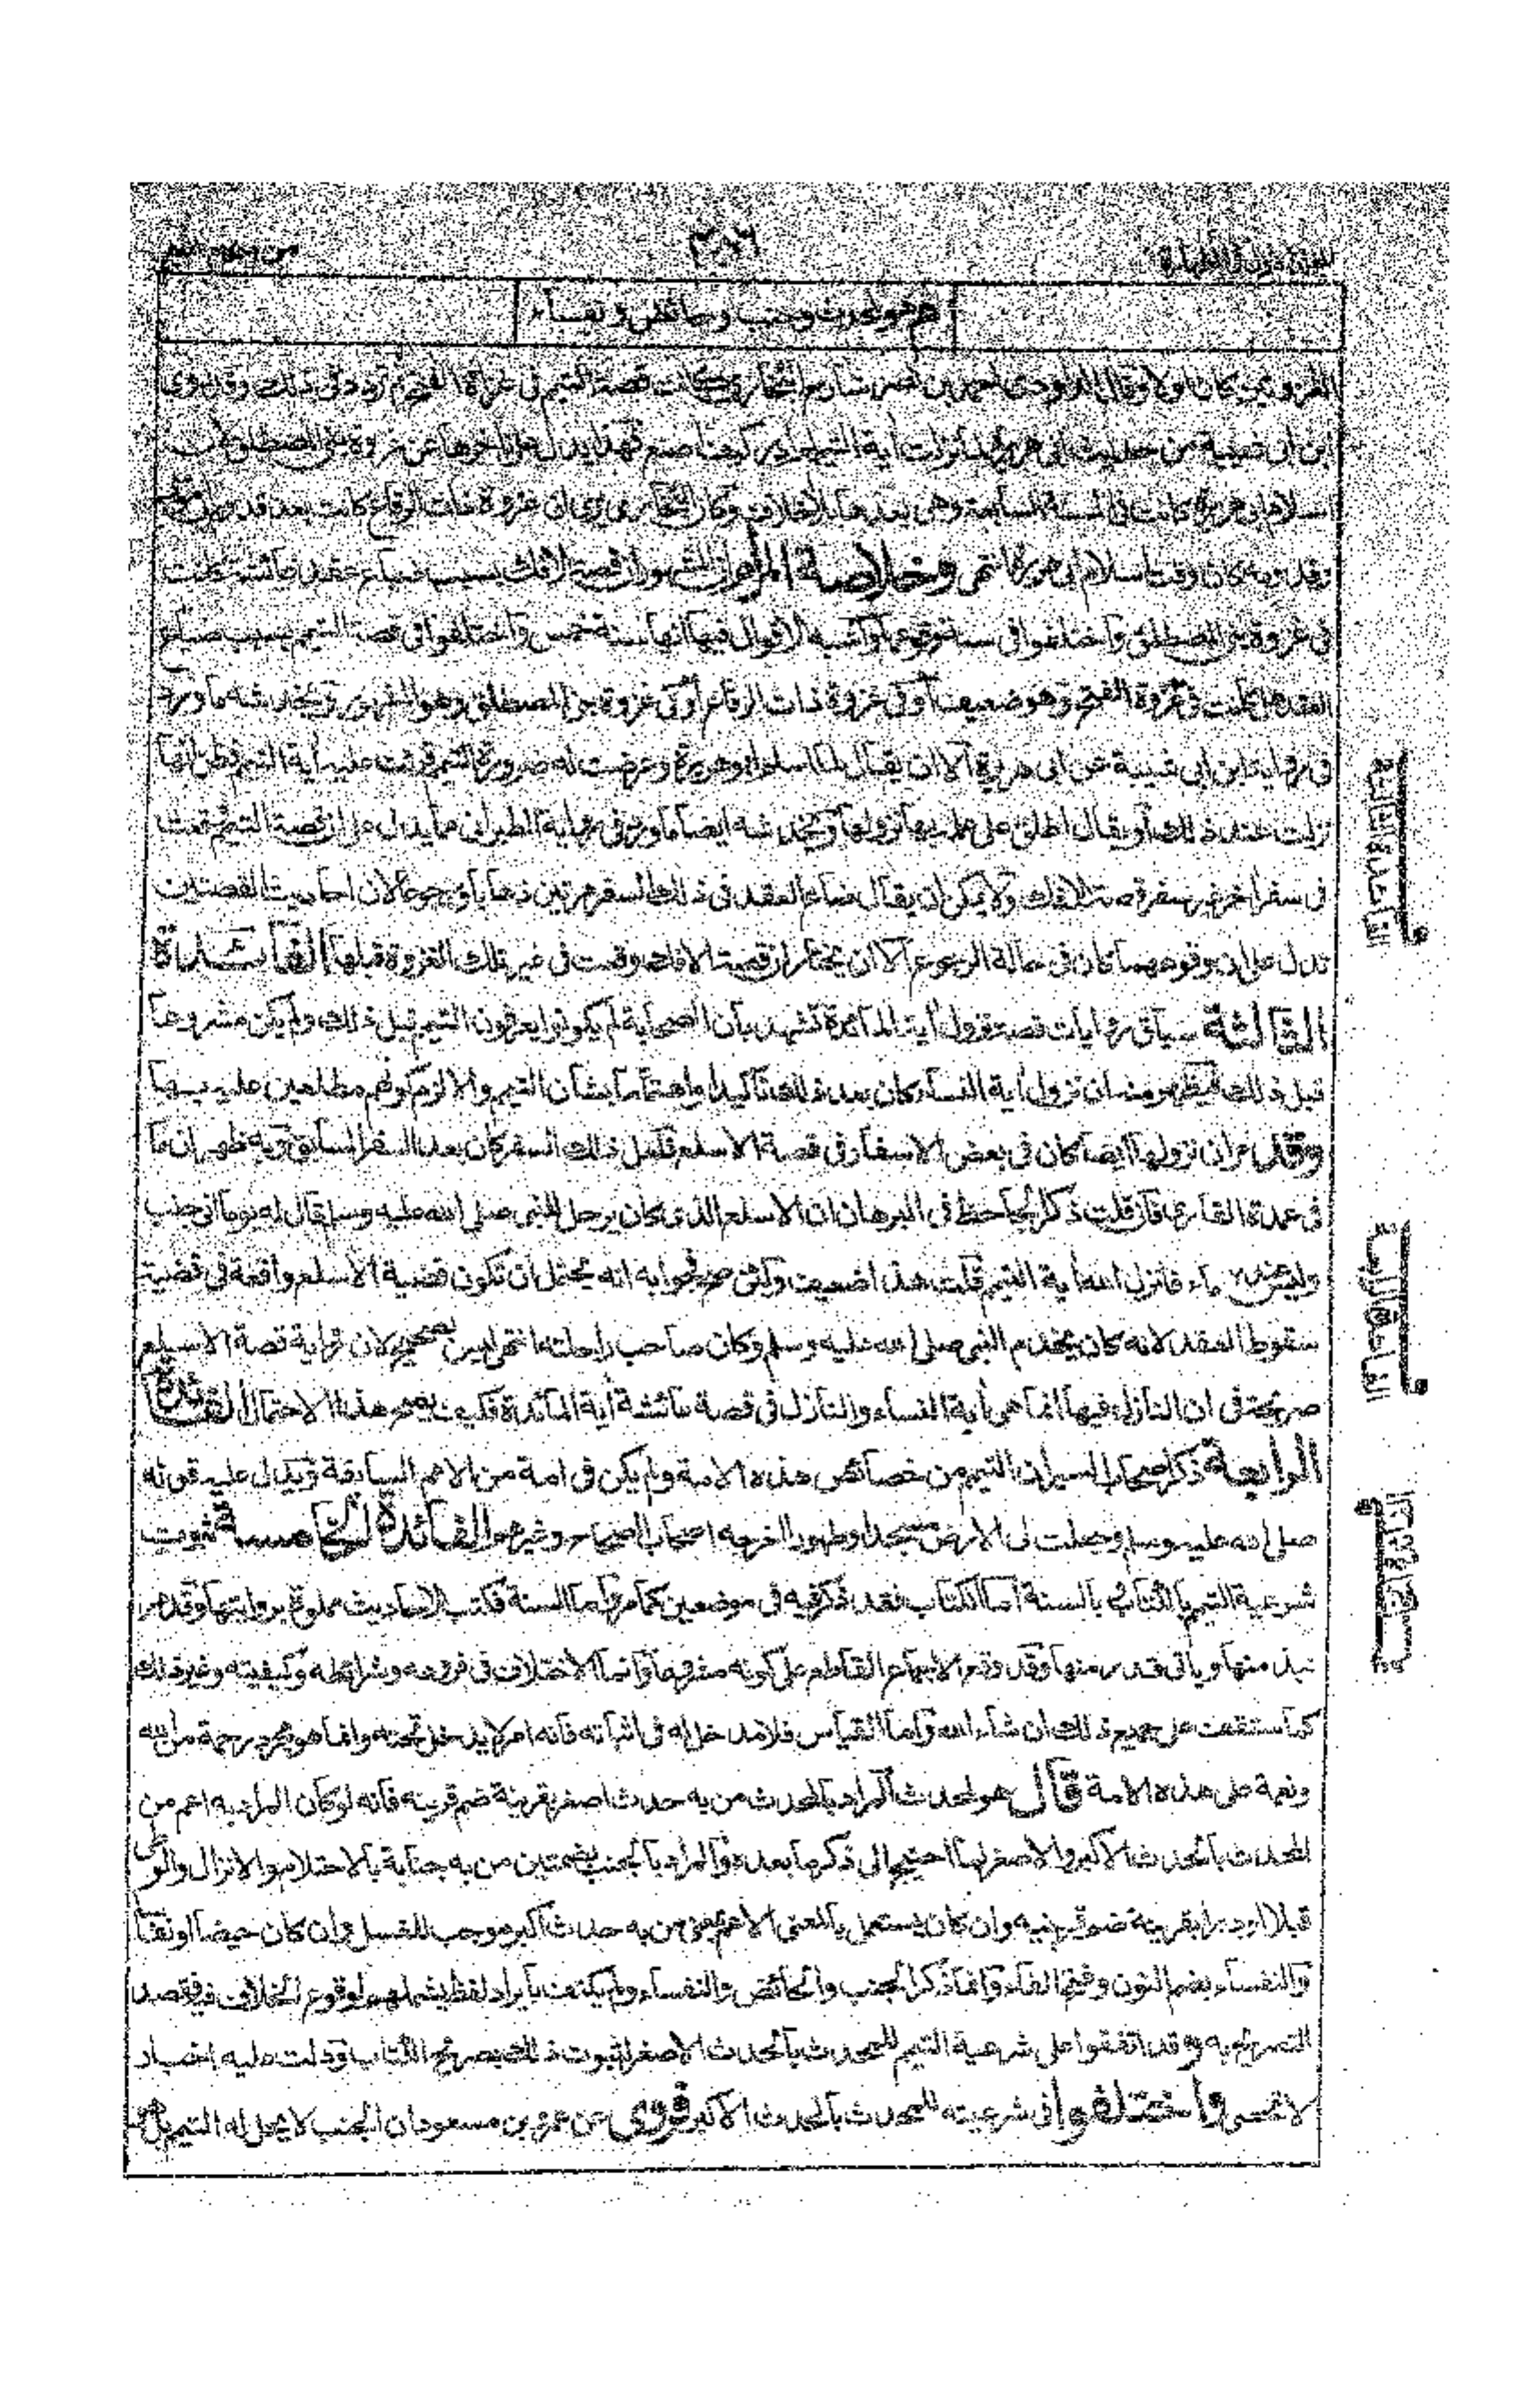 هو لمحدث وجنب وحائض ونفساء
الغزوتين كان اولا وقال الداودى كانت قصة التيمم فى غزاة الفتح ثم تردد فى ذلك وقد روى
ابن ابى شيبة من حديث ابى هريرة لما نزلت اية التيمم لم ادر كيف اصنع فهذا يدل على تاخرها عن غزوة بنى المصطلق لان
اسلام ابى هريرة كانت فى السنة السابعة وهى بعدها بلا خلاف وكان البخارى يرى ان غزوة ذات الرقاع كانت بعد قدوم ابى موسى
وقدومه كان وقت اسلام ابى هريرة انتهى وخلاصة المرام ان المشهور ان قصة الافك بسبب ضياع عقد عائشة كانت
فى غزوة بنى المصطلق واختلفوا فى سنة وقوعها واشبه الاقوال فيها انها سنة خمس واختلفوا فى قصة التيمم بسبب ضياع
العقد هل كانت فى غزوة الفتح وهو ضعيف او فى غزوة ذات الرقاع او فى غزوة بنى المصطلق وهو المشهور ويخدشه ما ورد
فى رواية ابن ابى شيبة عن ابى هريرة الا ان يقال لما اسلم ابو هريرة وعرضت له ضرورة التيمم قرئت عليه اية التيمم فظن انها
نزلت عند ذلك او يقال اطلق على علمه بها نزولها ويخدشه ايضا ما ورد فى رواية الطبرانى مما يدل على ان قصة التيمم وقعت
فى سفر اخر غير سفر قصة الافك ولا يمكن ان يقال ضاع العقد فى ذلك السفر مرتين ذهابا ورجوعا لان احاديث القصتين
تدل على ان وقوعهما كان فى حالة الرجوع الا ان يختار ان قصة الافك وقعت فى غير تلك الغزوة قبلها الفائدة
الثالثة سياق روايات قصة نزول اية المائدة تشهد بان الصحابة لم يكونوا يعرفون التيمم قبل ذلك ولم يكن مشروعا
قبل ذلك فيظهر منه ان نزول اية النساء كان بعد ذلك تاكيدا واهتماما بشان التيمم والا لزم كونهم مطلعين عليه بها
وقد مر ان نزولها ايضا كان فى بعض الاسفار فى قصة الاسلع فلعل ذلك السفر كان بعد السفر السابق وبه ظهر ان ما
فى عمدة القارى فان قلت ذكر الجاحظ فى البرهان ان الاسلع الذى كان يرحل للنبى صلى الله عليه وسلم قال له يوما انى جنب
وليس عندى ماء فانزل الله اية التيمم قلت هذا ضعيف ولئن صح فجوابه انه يحتمل ان تكون قضية الاسلع واقعة فى قضية
سقوط العقد لانه كان يخدم النبى صلى الله عليه وسلم وكان صاحب راحلته انتهى ليس بصحيح لان رواية قصة الاسلع
صريحة فى ان النازل فيها انما هى اية النساء والنازل فى قصة عائشة اية المائدة فكيف يصح هذا الاحتمال الفائدة
الرابعة ذكر اصحاب السير ان التيمم من خصائص هذه الامة ولم يكن فى امة من الامم السابقة ويدل عليه قوله
صلى الله عليه وسلم وجعلت لى الارض مسجدا وطهورا اخرجه اصحاب الصحاح وغيرهم الفائدة الخامسة ثبوت
شرعية التيمم بالكتاب بالسنة اما الكتاب فقد ذكر فيه فى موضعين كما مر واما السنة فكتب الاحاديث مملوة بروايتها وقد مر
نبذ منها وياتى قدر منها وقد وقع الاجماع القاطع على كونه مشروعا وانما الاختلاف فى فروعه وشرائطه وكيفيته وغير ذلك
كما ستقف على جميع ذلك ان شاء الله واما القياس فلا مدخل له فى اثباته فانه امر لا يدخل تحته وانما هو مجرد رحمة من الله
ونعمة على هذه الامة قال هو لمحدث المراد بالمحدث من به حدث اصغر بقرينة ضم قرينه فانه لو كان المراد به اعم من
المحدث بالحدث الاكبر والاصغر لما احتيج الى ذكرها بعده والمراد بالجنب بضمتين من به جنابة بالاحتلام والانزال والوطى
قبلا او دبرا بقرينة ضم قرينيه وان كان يستعمل بالمعنى الاعم يعنى من به حدث اكبر موجب للغسل وان كان حيضا او نفاسا
والنفساء بضم النون وفتح الفاء وانما ذكر الجنب والحائض والنفساء ولم يكتف بايراد لفظ يشملهم لوقوع الخلاف فيه فقصد
التصريح به وقد اتفقوا على شرعية التيمم للمحدث بالحدث الاصغر لثبوت ذلك بصريح الكتاب ودلت عليه اخبار
لا تحصى واختلفوا فى شرعيته للمحدث بالحدث الاكبر فروى عن عمر وابن مسعود ان الجنب لا يحل له التيمم
الفائدة الثالثة
الفائدة الرابعة